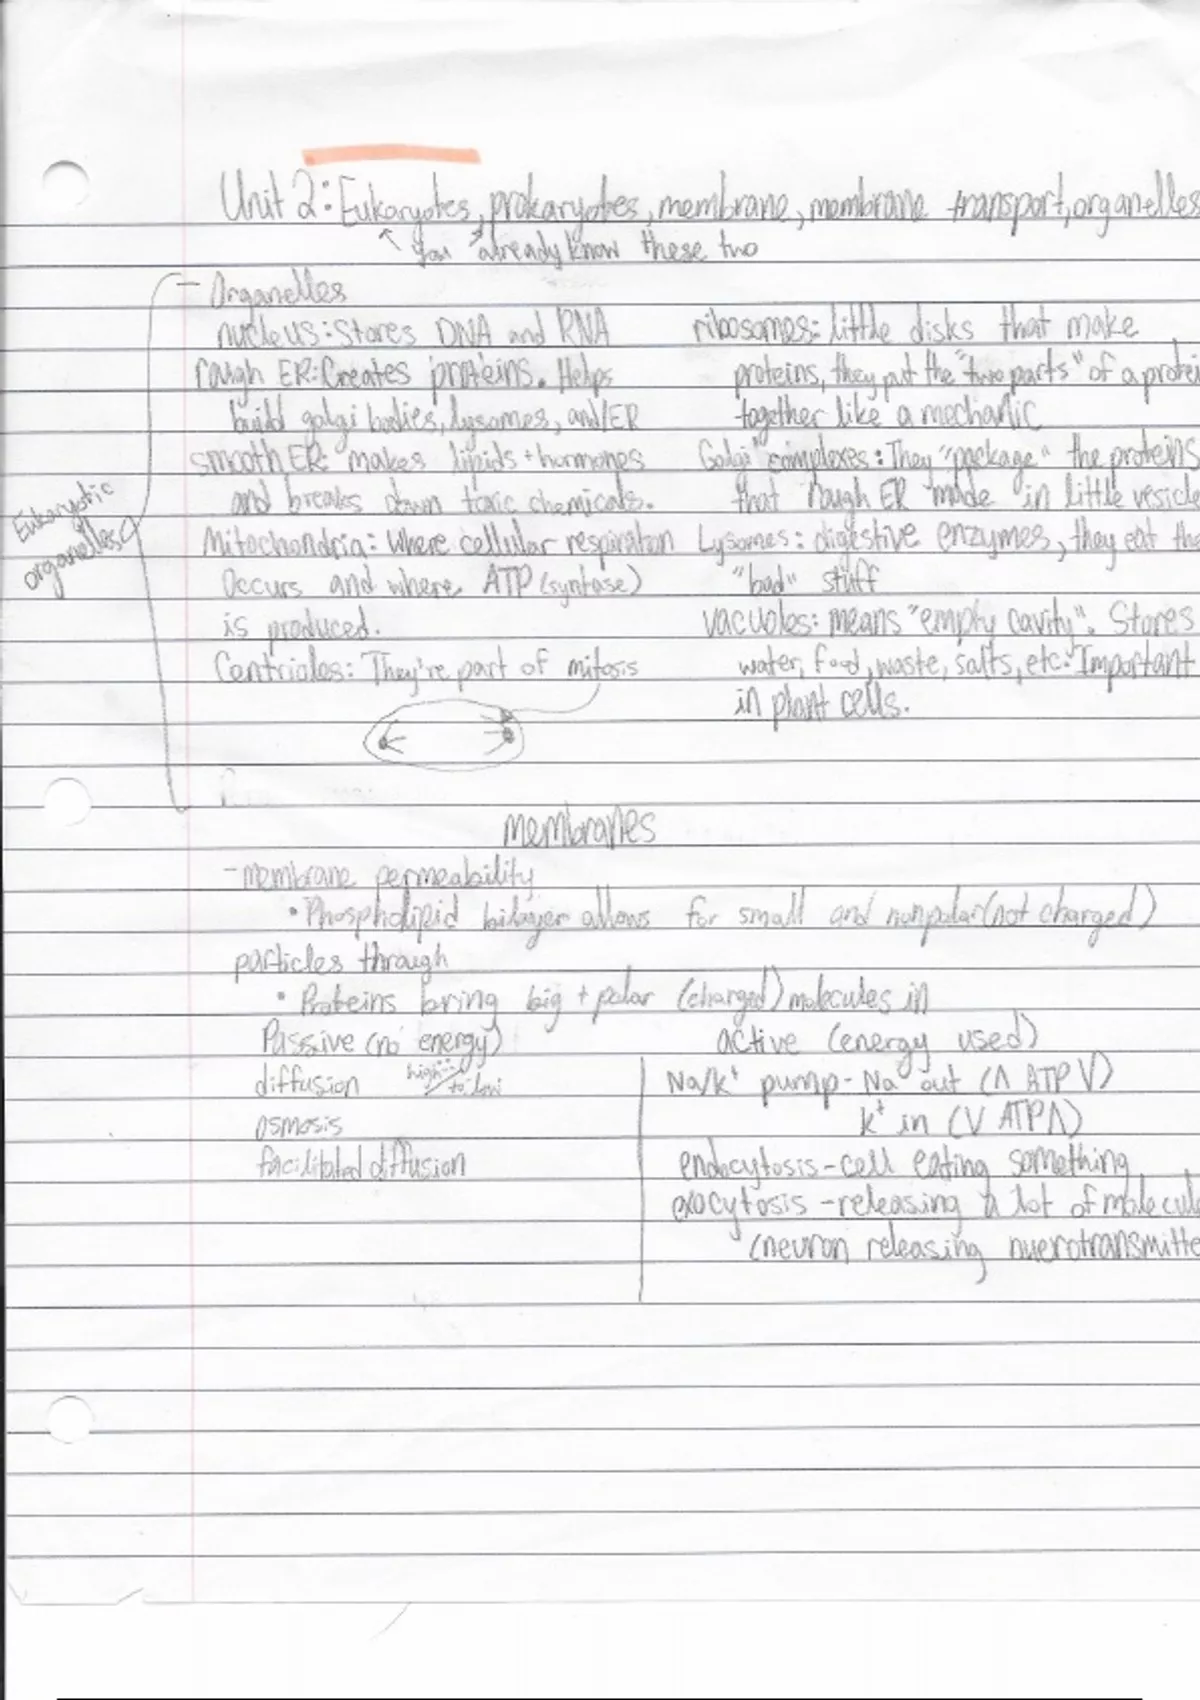 Unit 2: Eukaryotes, prokaryotes, membrane, membrane transport, organelles
↖ You ↗ already know these two
- Organelles
nucleus: Stores DNA and RNA
rough ER: Creates proteins. Helps
build golgi bodies, lysomes, and/ER
smooth ER: makes lipids + hormones
and breaks down toxic chemicals.
Mitochondria: Where cellular respiration
Occurs and where ATP (syntase)
is produced.
Centrioles: They're part of mitosis
Eukaryotic
organelles
ribosomes: little disks that make
proteins, they put the "two parts" of a protei
together like a mechanic
Golgi complexes: They "package" the proteins
that rough ER made in little vesicle
Lysomes: digestive enzymes, they eat the
"bad" stuff
vacuoles: means "empty cavity". Stores
water, food, waste, salts, etc. Important
in plant cells.
Membranes
- membrane permeability
• Phospholipid bilayer allows for small and nonpolar (not charged)
particles through
• Proteins bring big + polar (charged) molecules in
Passive (no energy)
diffusion high to low
osmosis
facilitated diffusion
active (energy used)
Na/k⁺ pump - Na⁺ out (Λ ATP V)
k⁺ in (V ATP Λ)
endocytosis - cell eating something
exocytosis - releasing a lot of molecule
(neuron releasing nuerotransmitte